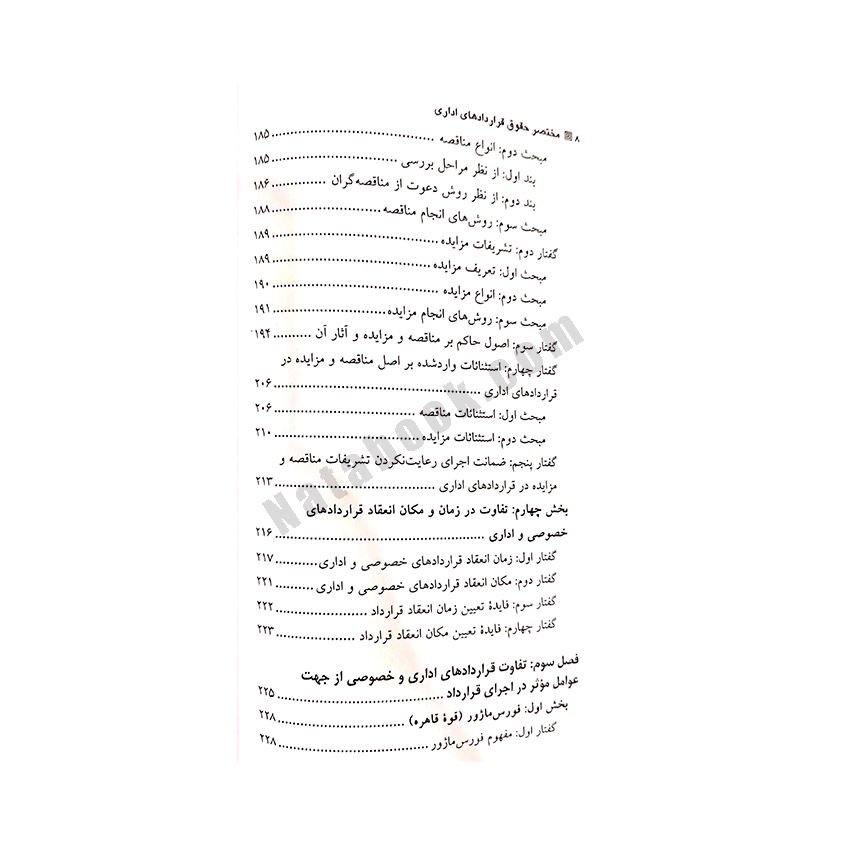 ۸ مختصر حقوق قراردادهای اداری
مبحث دوم: انواع مناقصه ........................................ ۱۸۵
بند اول: از نظر مراحل بررسی ............................... ۱۸۵
بند دوم: از نظر روش دعوت از مناقصه‌گران ............. ۱۸۶
مبحث سوم: روش‌های انجام مناقصه ........................... ۱۸۸
گفتار دوم: تشریفات مزایده ......................................... ۱۸۹
مبحث اول: تعریف مزایده ....................................... ۱۸۹
مبحث دوم: انواع مزایده ......................................... ۱۹۰
مبحث سوم: روش‌های انجام مزایده ........................... ۱۹۱
گفتار سوم: اصول حاکم بر مناقصه و مزایده و آثار آن .......... ۱۹۴
گفتار چهارم: استثنائات واردشده بر اصل مناقصه و مزایده در
قراردادهای اداری .................................................... ۲۰۶
مبحث اول: استثنائات مناقصه ................................... ۲۰۶
مبحث دوم: استثنائات مزایده .................................... ۲۱۰
گفتار پنجم: ضمانت اجرای رعایت‌نکردن تشریفات مناقصه و
مزایده در قراردادهای اداری ........................................ ۲۱۳
بخش چهارم: تفاوت در زمان و مکان انعقاد قراردادهای
خصوصی و اداری ..................................................... ۲۱۶
گفتار اول: زمان انعقاد قراردادهای خصوصی و اداری ........... ۲۱۷
گفتار دوم: مکان انعقاد قراردادهای خصوصی و اداری .......... ۲۲۱
گفتار سوم: فایدهٔ تعیین زمان انعقاد قرارداد ....................... ۲۲۲
گفتار چهارم: فایدهٔ تعیین مکان انعقاد قرارداد .................... ۲۲۳
فصل سوم: تفاوت قراردادهای اداری و خصوصی از جهت
عوامل مؤثر در اجرای قرارداد ......................................... ۲۲۵
بخش اول: فورس‌ماژور (قوهٔ قاهره) ................................ ۲۲۸
گفتار اول: مفهوم فورس‌ماژور ..................................... ۲۲۸
Natabook.com